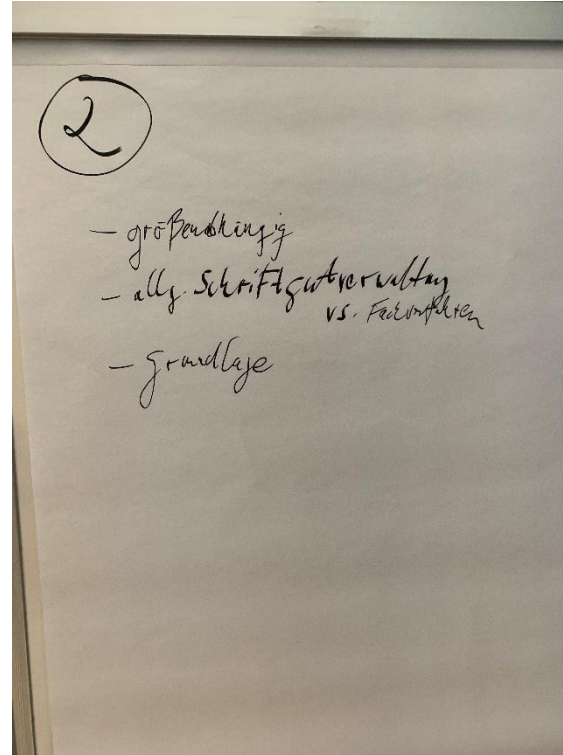 2
- größenabhängig
- allg. Schriftgutverwaltung
vs. Fachverfahren
- Grundlage